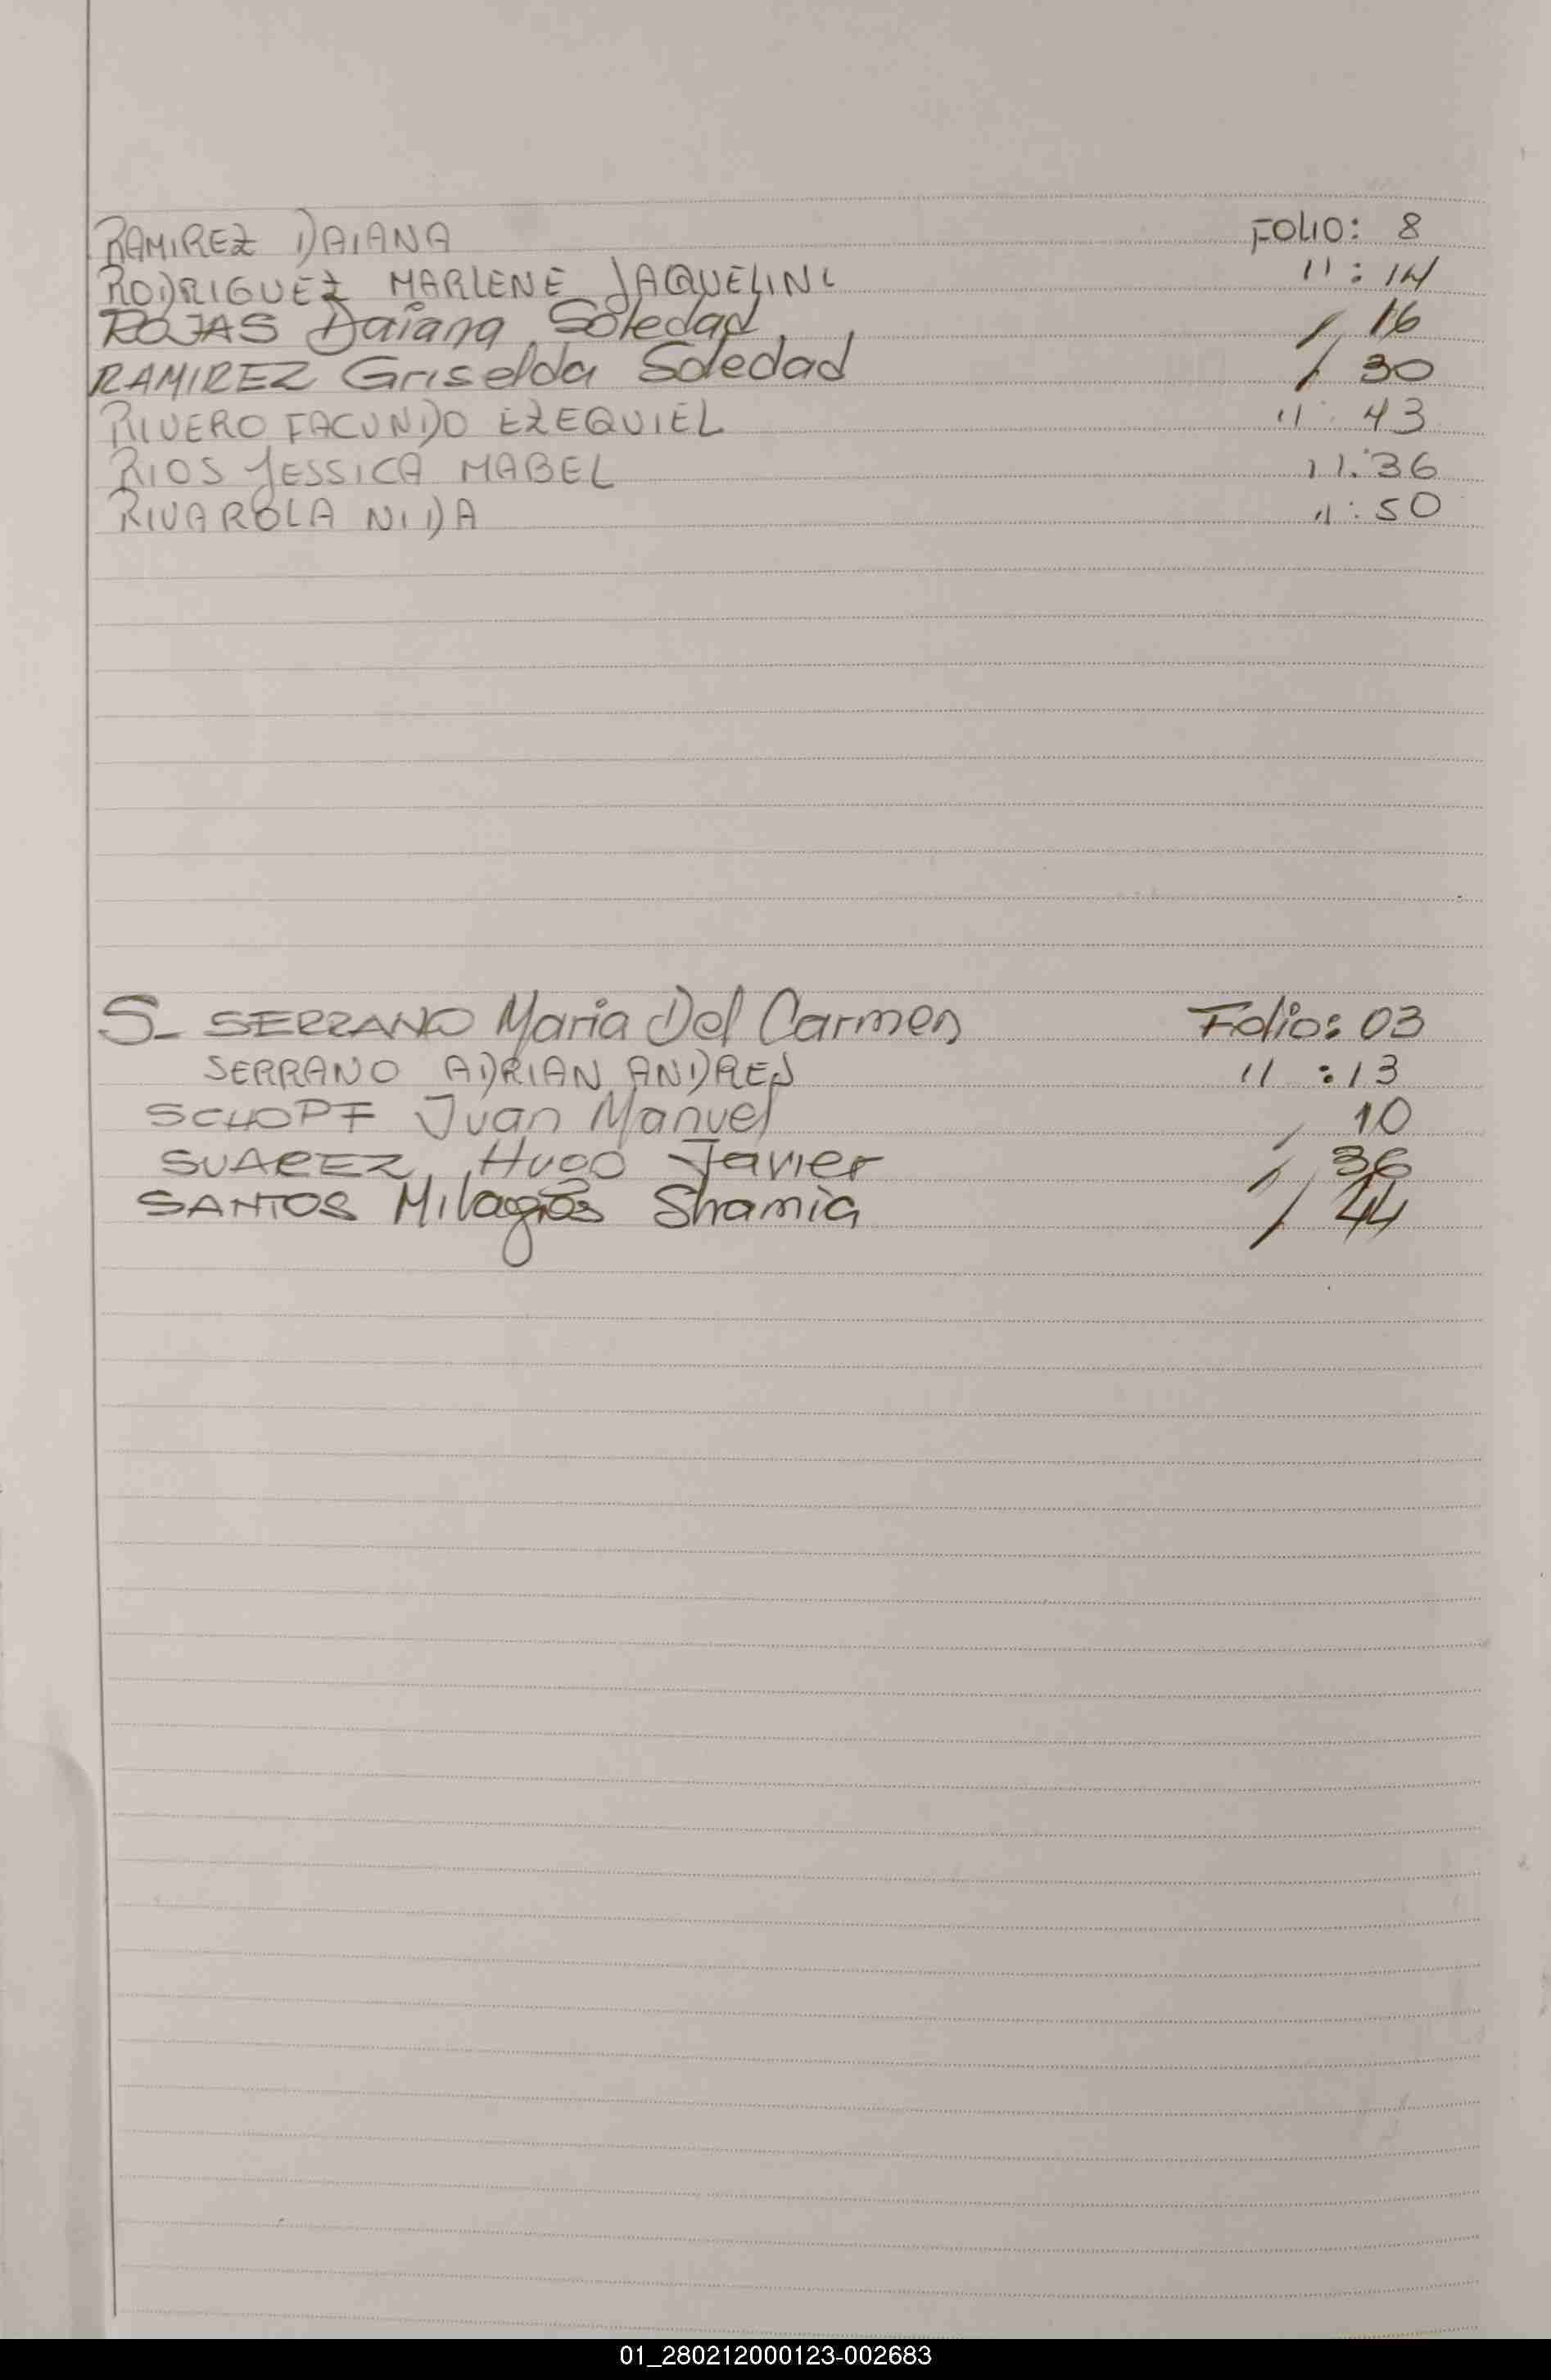 RAMIREZ DAIANA FOLIO: 8
RODRIGUEZ MARLENE JAQUELINE 11 : 14
ROJAS Daiana Soledad / 16
RAMIREZ Griselda Soledad / 30
RIVERO FACUNDO EZEQUIEL 11 : 43
RIOS JESSICA MABEL 11:36
RIVAROLA NIDA 11 : 50
S_ SERRANO Maria Del Carmen Folio: 03
SERRANO ADRIAN ANDRES 11 : 13
SCHOPF Juan Manuel / 10
SUAREZ, Hugo Javier / 36
SANTOS Milagros Shamia / 44
01_280212000123-002683